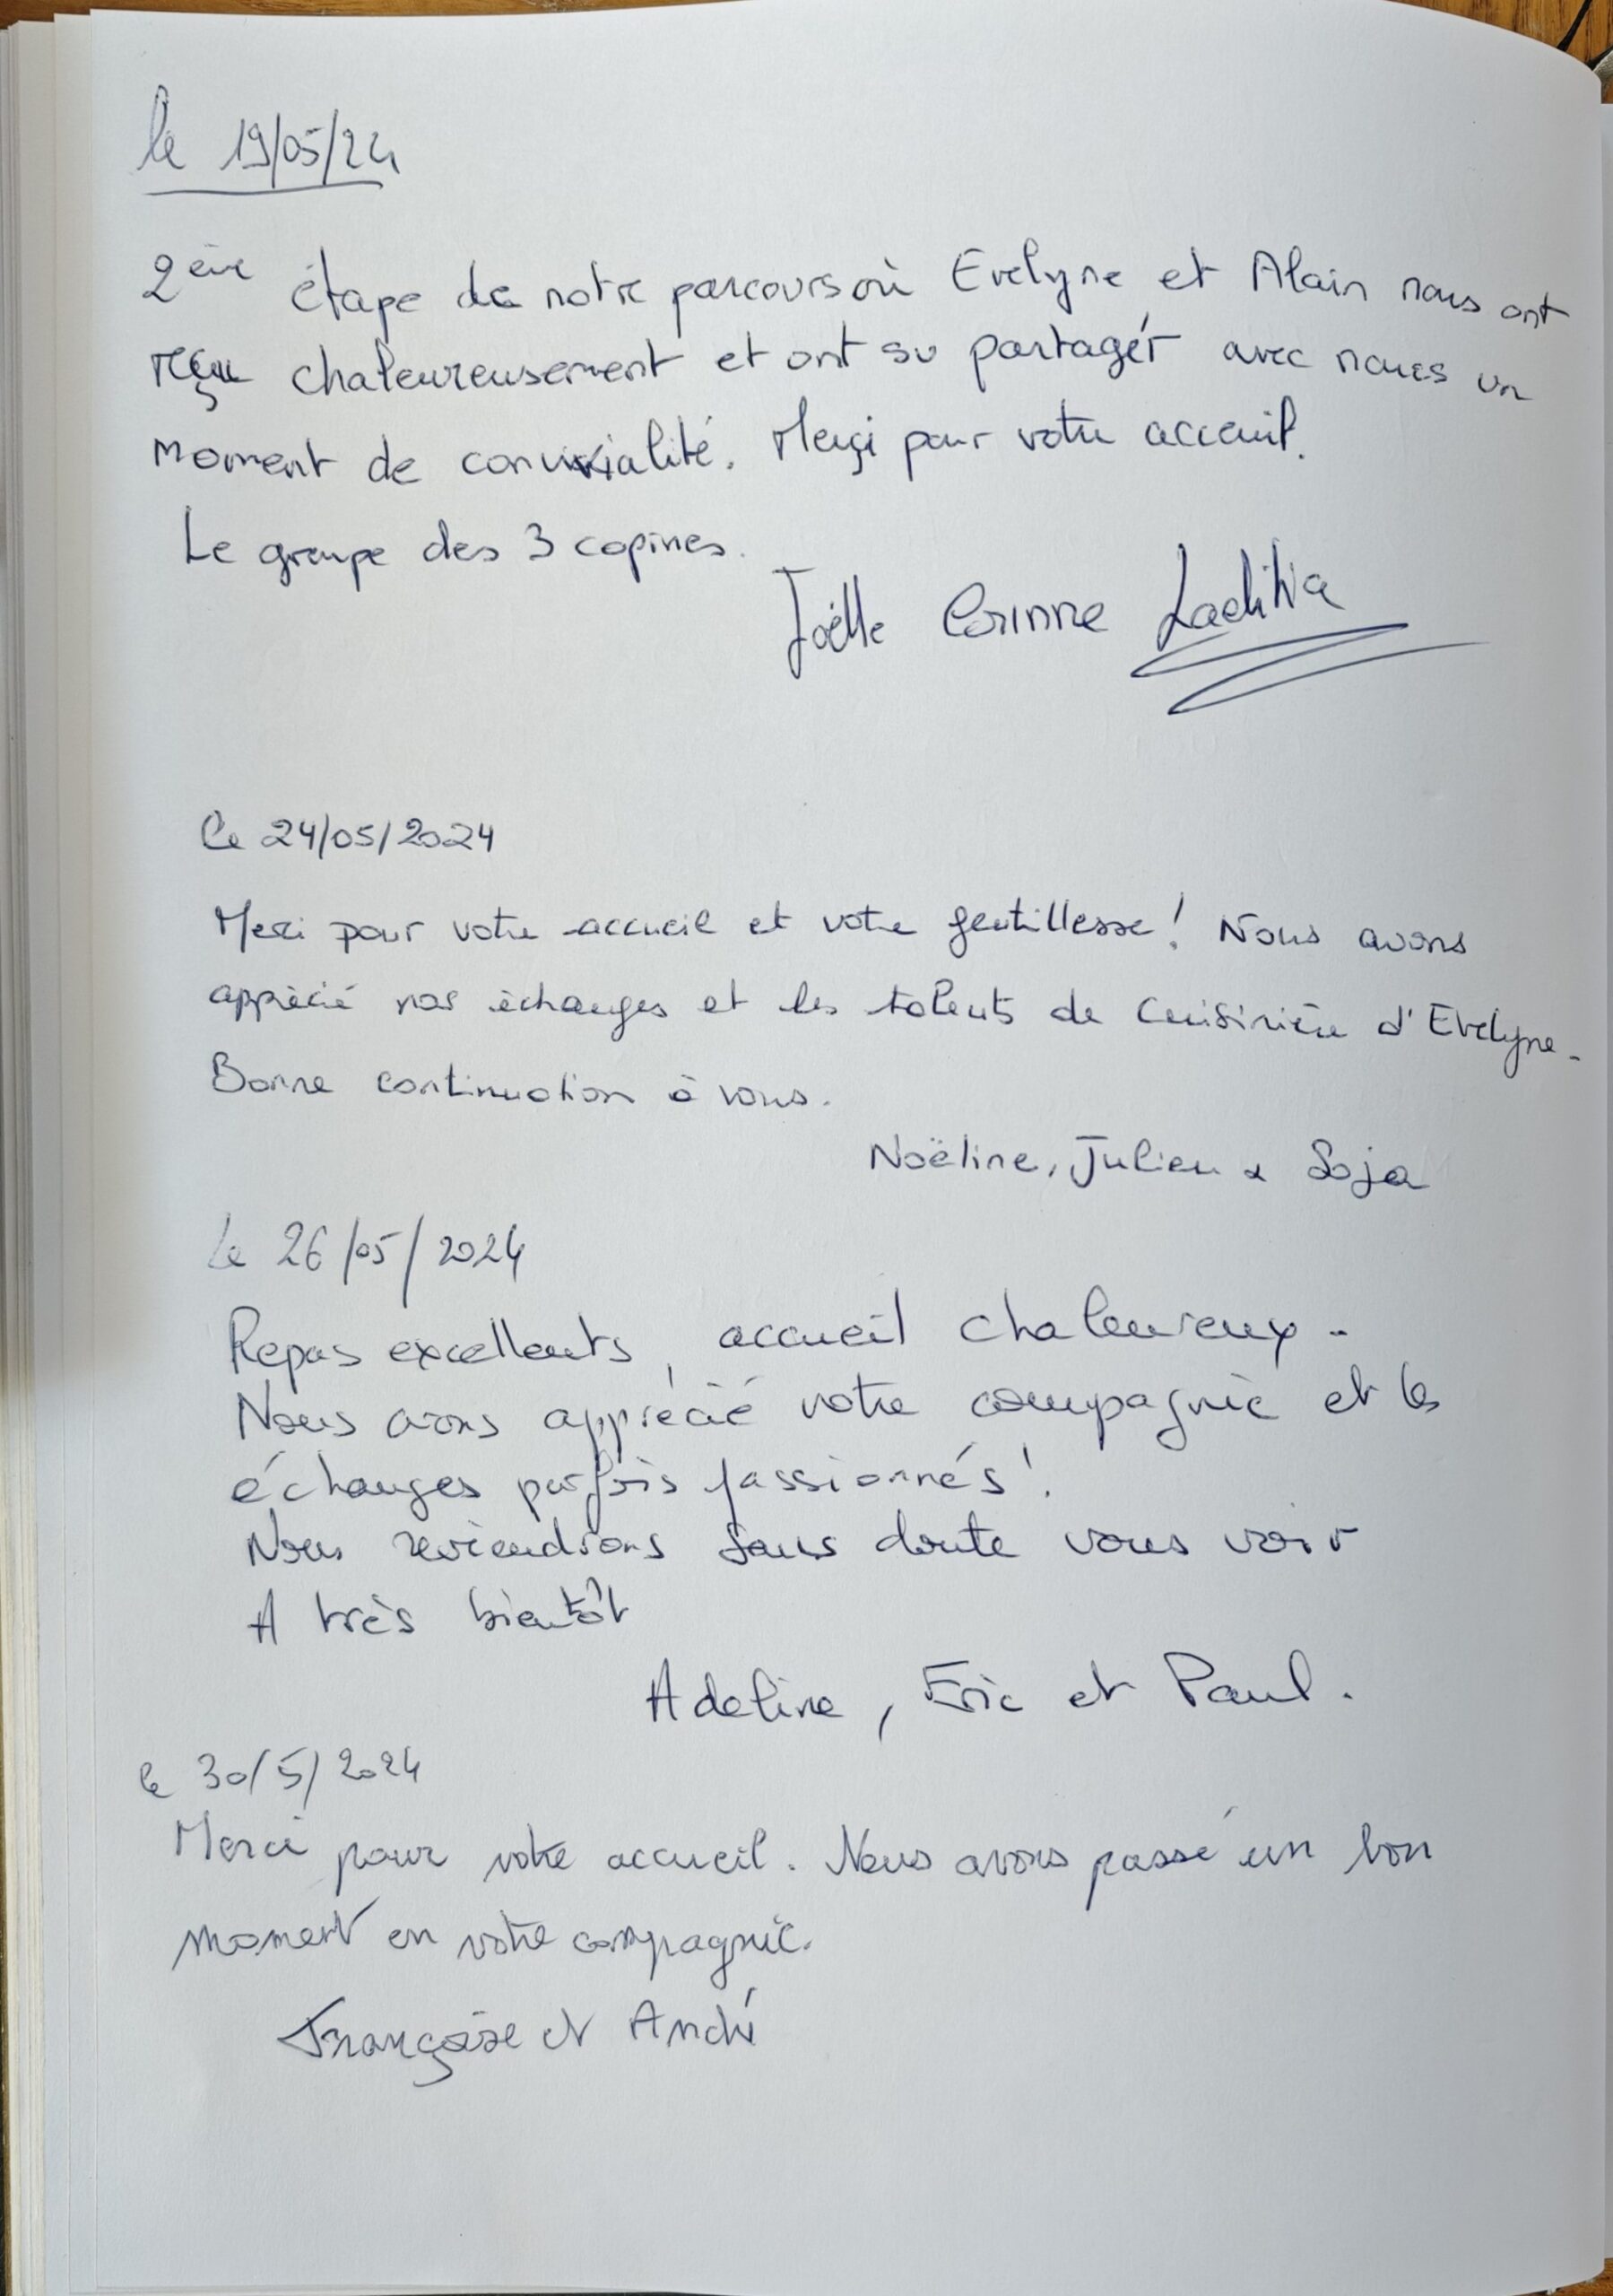 le 19/05/24
2ème étape de notre parcours où Evelyne et Alain nous ont
reçu chaleureusement et ont su partager avec nous un
moment de convivialité. Merçi pour votre acceuil.
Le groupe des 3 copines.
Joëlle Corinne Laetitia
Le 24/05/2024
Merci pour votre accueil et votre gentillesse! Nous avons
apprécié nos échanges et les talents de cuisinière d'Evelyne.
Bonne continuation à vous.
Noëline, Julien & Soja
Le 26/05/2024
Repas excellents, accueil chaleureux.
Nous avons apprécié votre compagnie et les
échanges parfois passionnés!
Nous reviendrons sans doute vous voir
A très bientôt
Adeline, Eric et Paul.
le 30/5/2024
Merci pour votre accueil. Nous avons passé un bon
moment en votre compagnie.
Françoise et André